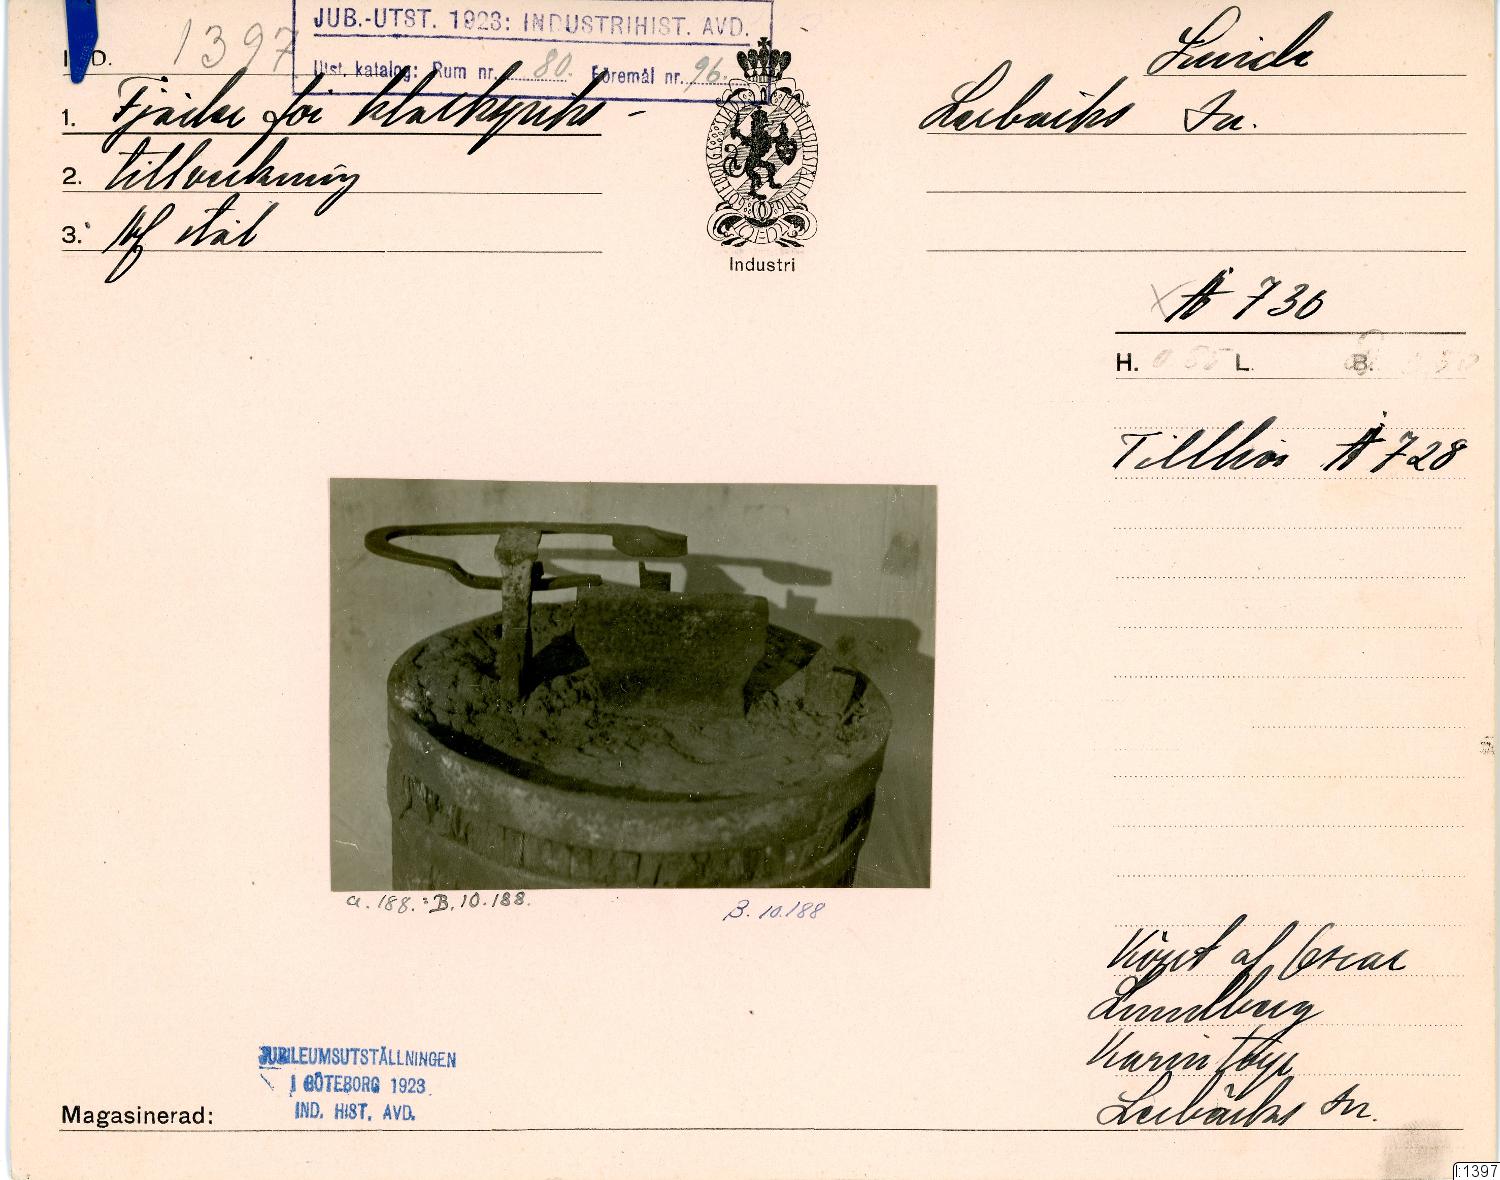 JUB.-UTST. 1923: INDUSTRIHIST. AVD.
Utst. katalog: Rum nr. 80. Föremål nr. 96.
IND. 1397
1. Fjäder för klackjärns-
2. tillverkning
3. Af stål
GÖTEBORGS STADS
Industri
Lerbäcks Sn.
Å 730
H. 0 55 L. B.
Tillhör Å 728
a. 188. : B. 10. 188.
B. 10. 188
Köpt af Oscar
Lundberg
Karintorp
Lerbäcks Sn.
JUBILEUMSUTSTÄLLNINGEN
I GÖTEBORG 1923
IND. HIST. AVD.
Magasinerad:
I:1397